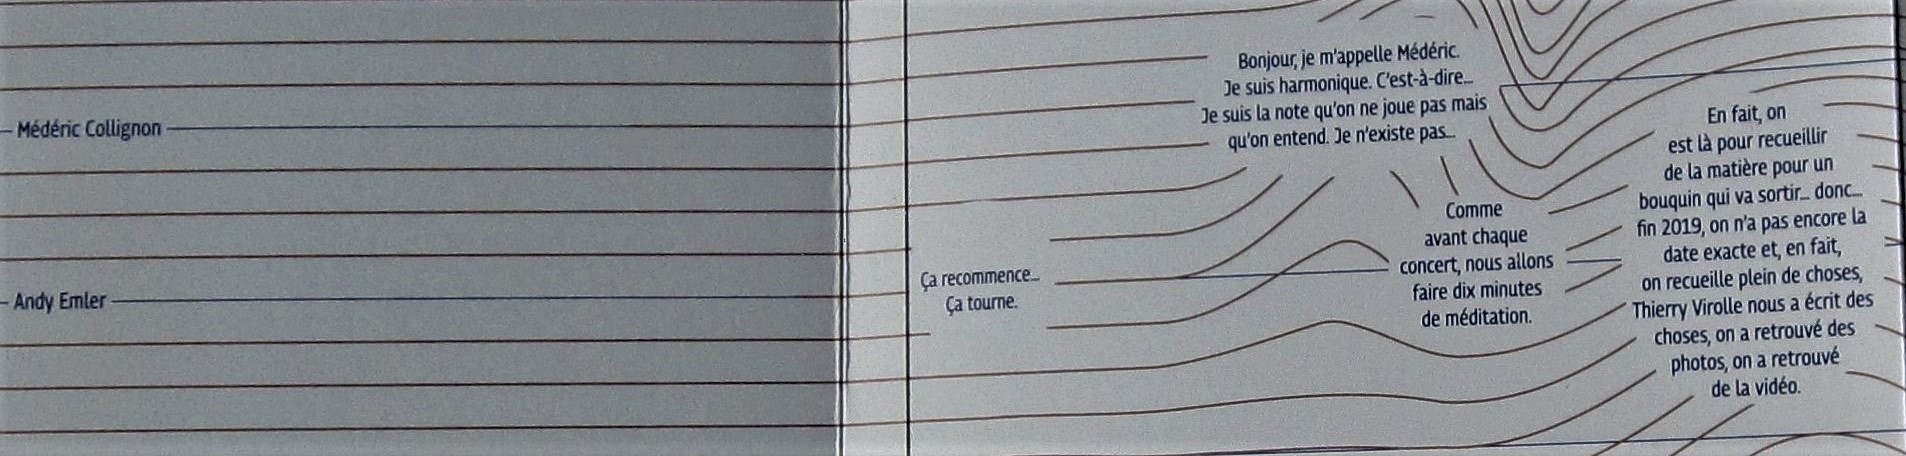 Médéric Collignon
Bonjour, je m'appelle Médéric.
Je suis harmonique. C'est-à-dire...
Je suis la note qu'on ne joue pas mais
qu'on entend. Je n'existe pas...
Andy Emler
Ça recommence...
Ça tourne.
Comme
avant chaque
concert, nous allons
faire dix minutes
de méditation.
En fait, on
est là pour recueillir
de la matière pour un
bouquin qui va sortir... donc...
fin 2019, on n'a pas encore la
date exacte et, en fait,
on recueille plein de choses,
Thierry Virolle nous a écrit des
choses, on a retrouvé des
photos, on a retrouvé
de la vidéo.